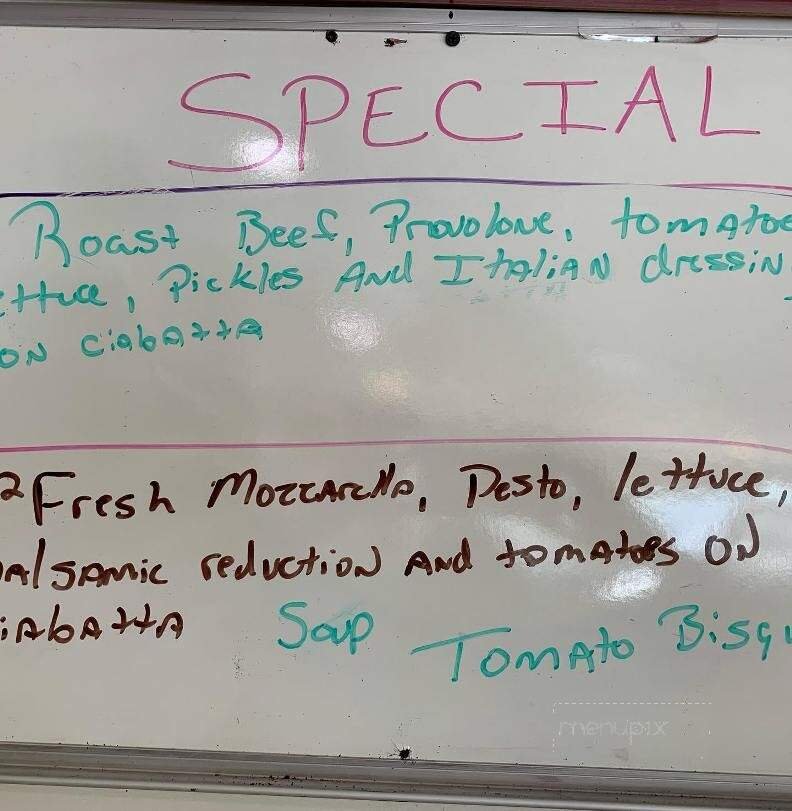 SPECIAL
Roast Beef, Provolone, tomatoe
ettuce, Pickles And Italian dressin
on ciabatta
2 Fresh Mozzarella, Pesto, lettuce,
alsamic reduction and tomatoes on
iabatta Soup Tomato Bisqu
menupix